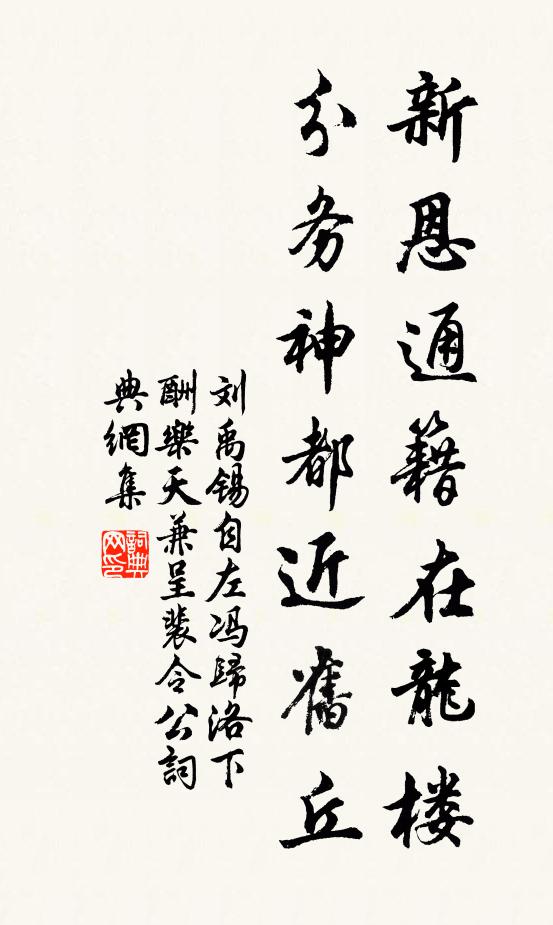 新恩通籍在龍楼
分务神都近舊丘
刘禹锡自左冯歸洛下
酬樂天兼呈裴令公詞
典網集
詞典
网印